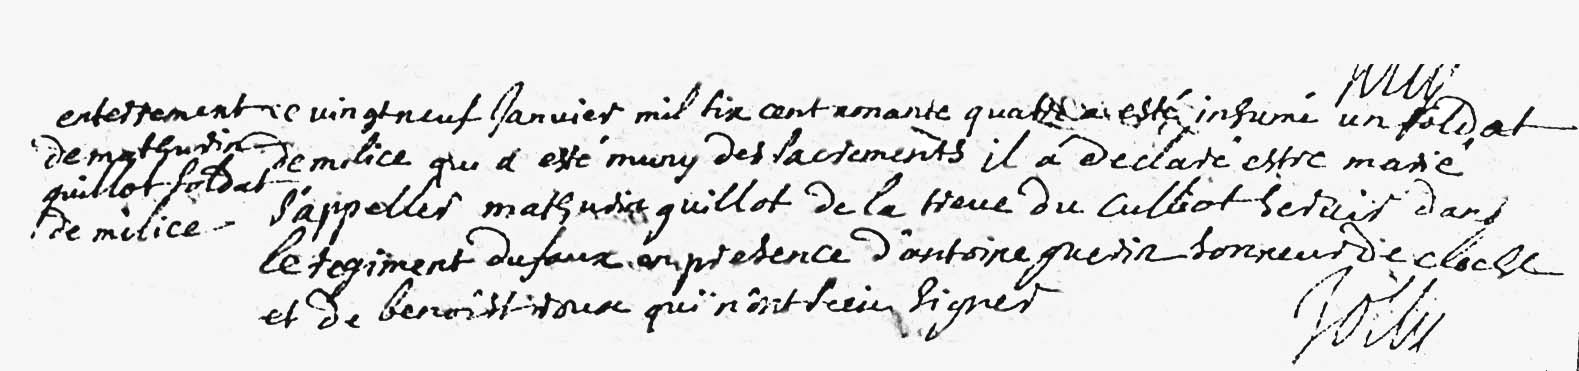 enterrement
de mathurin
guillot soldat
de milice
ce vingt neuf Janvier mil six cent nonante quattre a esté inhumé un soldat
de milice qui a esté muny des sacrements il a declaré estre marié
s'appeller mathurin guillot de la treue du Culbiot servir dans
le regiment dufaux en presence d'antoine guerin sonneur de cloche
et de benoist roux qui n'ont sceu signer